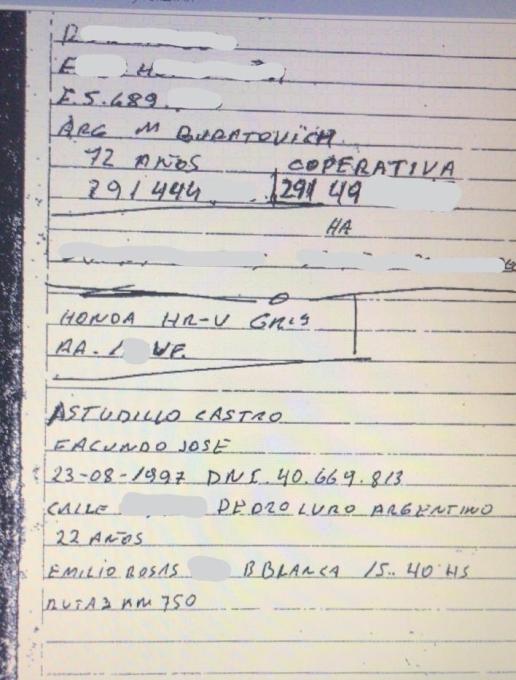 E H
E.5.689.
ARG M BURATOVICH
72 AÑOS COPERATIVA
291 444 291 49
HA
HONDA HR-V GRIS
AA. 1 WF.
ASTUDILLO CASTRO
FACUNDO JOSE
23-08-1997 DNI. 40.669.813
CALLE PEDRO LURO ARGENTINO
22 AÑOS
EMILIO ROSAS B BLANCA 15.. 40 HS
RUTA 3 KM 750